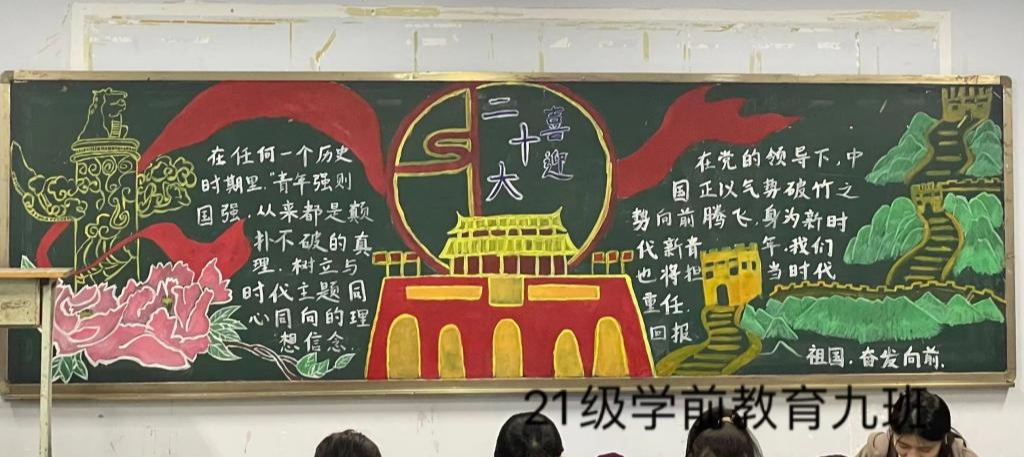 喜迎
二十大
在任何一个历史
时期里.“青年强则
国强.从来都是颠
扑不破的真
理.树立与
时代主题同
心同向的理
想信念.
在党的领导下,中
国正以气势破竹之
势向前腾飞.身为新时
代新青年.我们
也将担当时代
重任.
回报
祖国.奋发向前.
21级学前教育九班